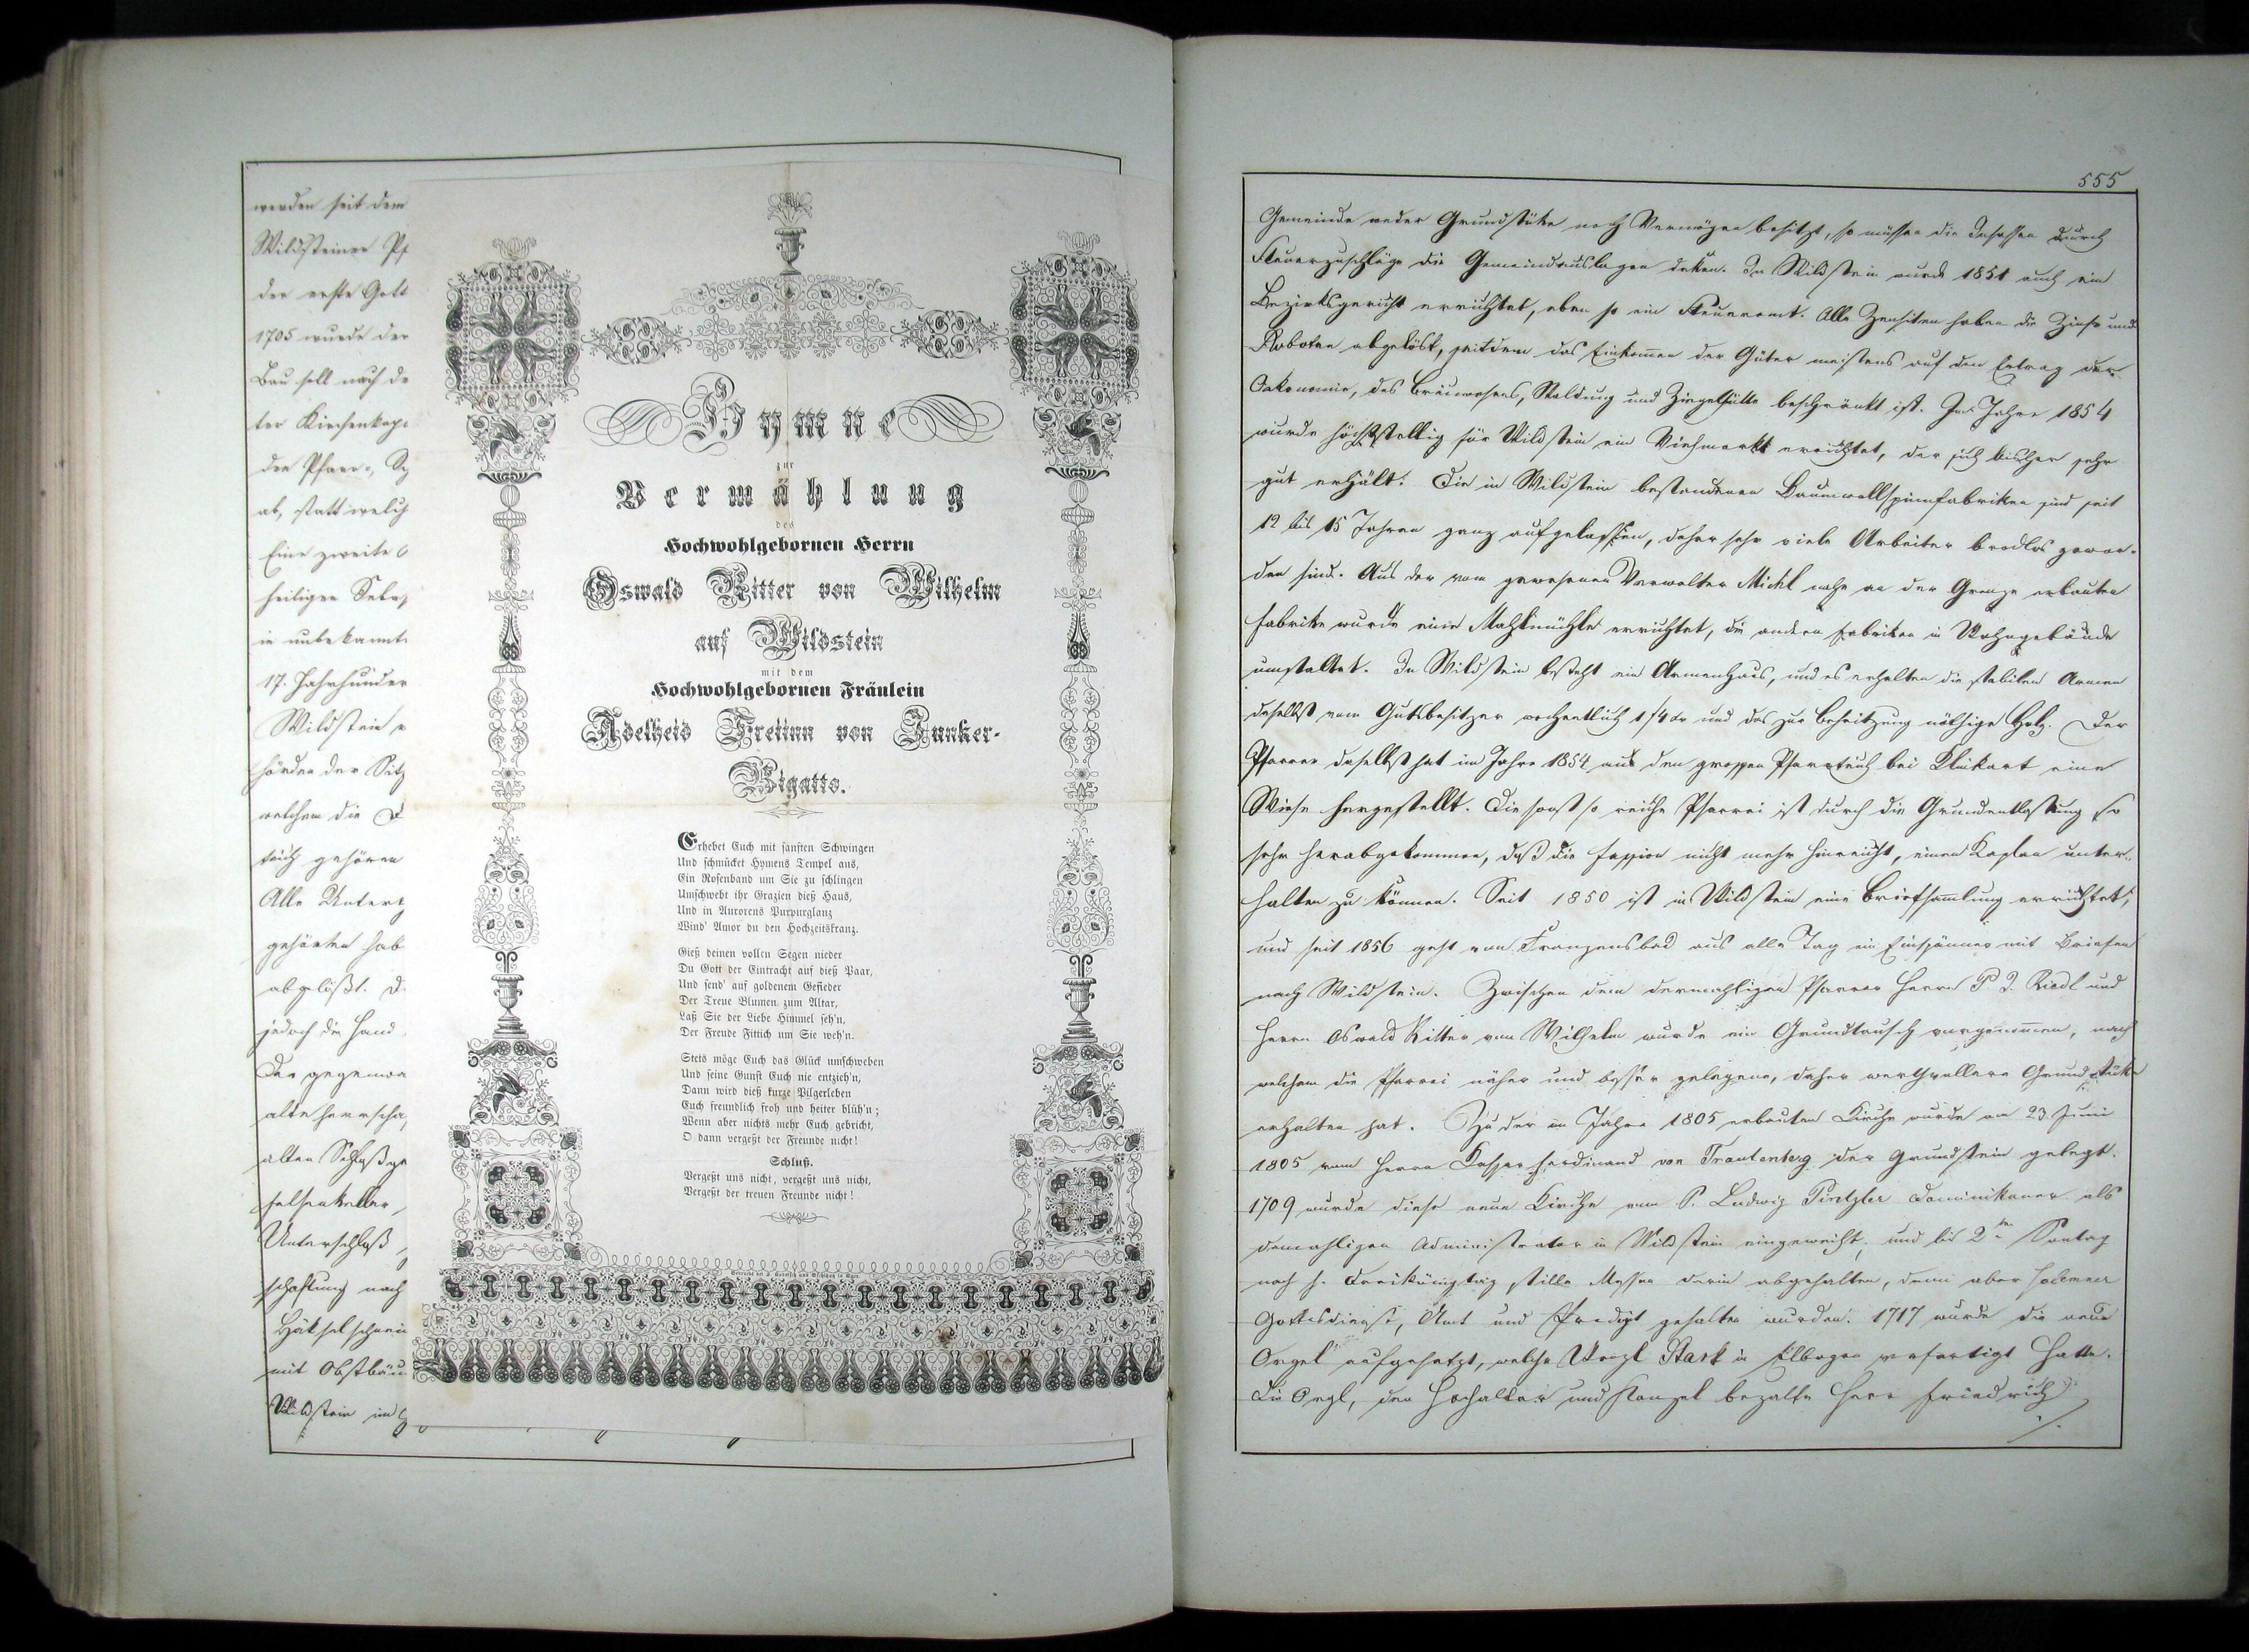 werden seit dem
Wildsteiner Pf
der erste Gott
1705 wurde der
Bau soll nach de
ter Kirchenkap
den Pfarr-,
ab, statt welch
Eine zweite
heiligen Seba
in unbekannte
17. Jahrhunder
Wildstein
hörden der Sitz
welchem die
gehören
Alle Untert
gehörten hab
abgelößt. D
jedoch die Hand
Der gegenwä
alte herrscha
alten Schloßge
Felsenkeller,
Unterschloß
schaftung nach
mit Obstbäu
Wildstein im
Hymne
zur
Vermählung
des
Hochwohlgebornen Herrn
Oswald Ritter von Wilhelm
auf Wildstein
mit dem
Hochwohlgebornen Fräulein
Adelheid Freiinn von Junker-
Bigatto.
Erhebet Euch mit sanften Schwingen
Und schmücket Hymens Tempel aus,
Ein Rosenband um Sie zu schlingen
Umschwebt ihr Grazien dieß Haus,
Und in Aurorens Purpurglanz
Wind' Amor du den Hochzeitskranz.
Gieß deinen vollen Segen nieder
Du Gott der Eintracht auf dieß Paar,
Und send' auf goldenem Gefieder
Der Treue Blumen zum Altar,
Laß Sie der Liebe Himmel seh'n,
Der Freude Fittich um Sie weh'n.
Stets möge Euch das Glück umschweben
Und seine Gunst Euch nie entzieh'n,
Dann wird dieß kurze Pilgerleben
Euch freundlich froh und heiter blüh'n;
Wenn aber nichts mehr Euch gebricht,
O dann vergeßt der Freunde nicht!
Schluß.
Vergeßt uns nicht, vergeßt uns nicht,
Vergeßt der treuen Freunde nicht!
555
Gemeinde weder Grundstüke noch Vermögen besitzt, so müssen die Insassen durch
Steuerzuschläge die Gemeindeauslagen deken. In Wildstein wurde 1851 auch ein
Bezirksgericht errichtet, eben so ein Steueramt. Alle Zensiten haben die Zinse und
Roboten abgelöst, seitdem das Einkommen der Güter meistens auf den Ertrag der
Oekonomie, des Bräuwesens, Waldung und Ziegelhütte beschränkt ist. Im Jahre 1854
wurde höchststellig für Wildstein ein Viehmarkt errichtet, der sich bisher sehr
gut erhält. Die in Wildstein bestandenen Baumwollspinnfabriken sind seit
12 bis 15 Jahren ganz aufgelassen, daher sehr viele Arbeiter brodlos gewor-
den sind. Aus der vom gewesenen Verwalter Michl nahe an der Grenze erbauten
Fabrike wurde eine Mahlmühle errichtet, die andern Fabriken in Wohngebäude
umstaltet. In Wildstein besteht ein Armenhaus, und es erhalten die stabilen Armen
daselbst vom Gutsbesitzer wochentlich und das zur Beheitzung nöthige Holz. Der
Pfarrer daselbst hat im Jahre 1854 aus dem grossen Pfarrteich bei Klinkart eine
Wiese hergestellt. Die sonst so reiche Pfarrei ist durch die Grundentlastung so
sehr herabgekommen, daß die Fassion nicht mehr hinreicht, einen Kaplan unter-
halten zu können. Seit 1850 ist in Wildstein eine Briefsammlung errichtet,
und seit 1856 geht von Franzensbad aus alle Tag ein Einspänner mit Briefen
nach Wildstein. Zwischen dem dermahligen Pfarrer Herrn P. J. Riedl und
Herrn Oswald Ritter von Wilhelm wurde ein Grundtausch vorgenommen, nach
welchem die Pfarrei näher und besser gelegene, daher werthvollere Grundstüke
erhalten hat. Zu der im Jahre 1805 erbauten Kirche wurde am 23 Juni
1805 vom Herrn Kasper Ferdinand von Trautenberg der Grundstein gelegt.
1709 wurde diese neue Kirche vom P. Ludwig Dominikaner als
damahligen Administrator in Wildstein eingeweiht, und bis 2ten Sontag
nach h. Dreikönigtag stille Messen darin abgehalten, dann aber solemner
Gottesdienst, Amt und Predigt gehalten wurden. 1717 wurde die neue
Orgel aufgesetzt, welche Wenzl Stark in Elbogen verfertigt hatte.
Die Orgl, den Hochaltar und Kanzel bezalte Herr Friedrich